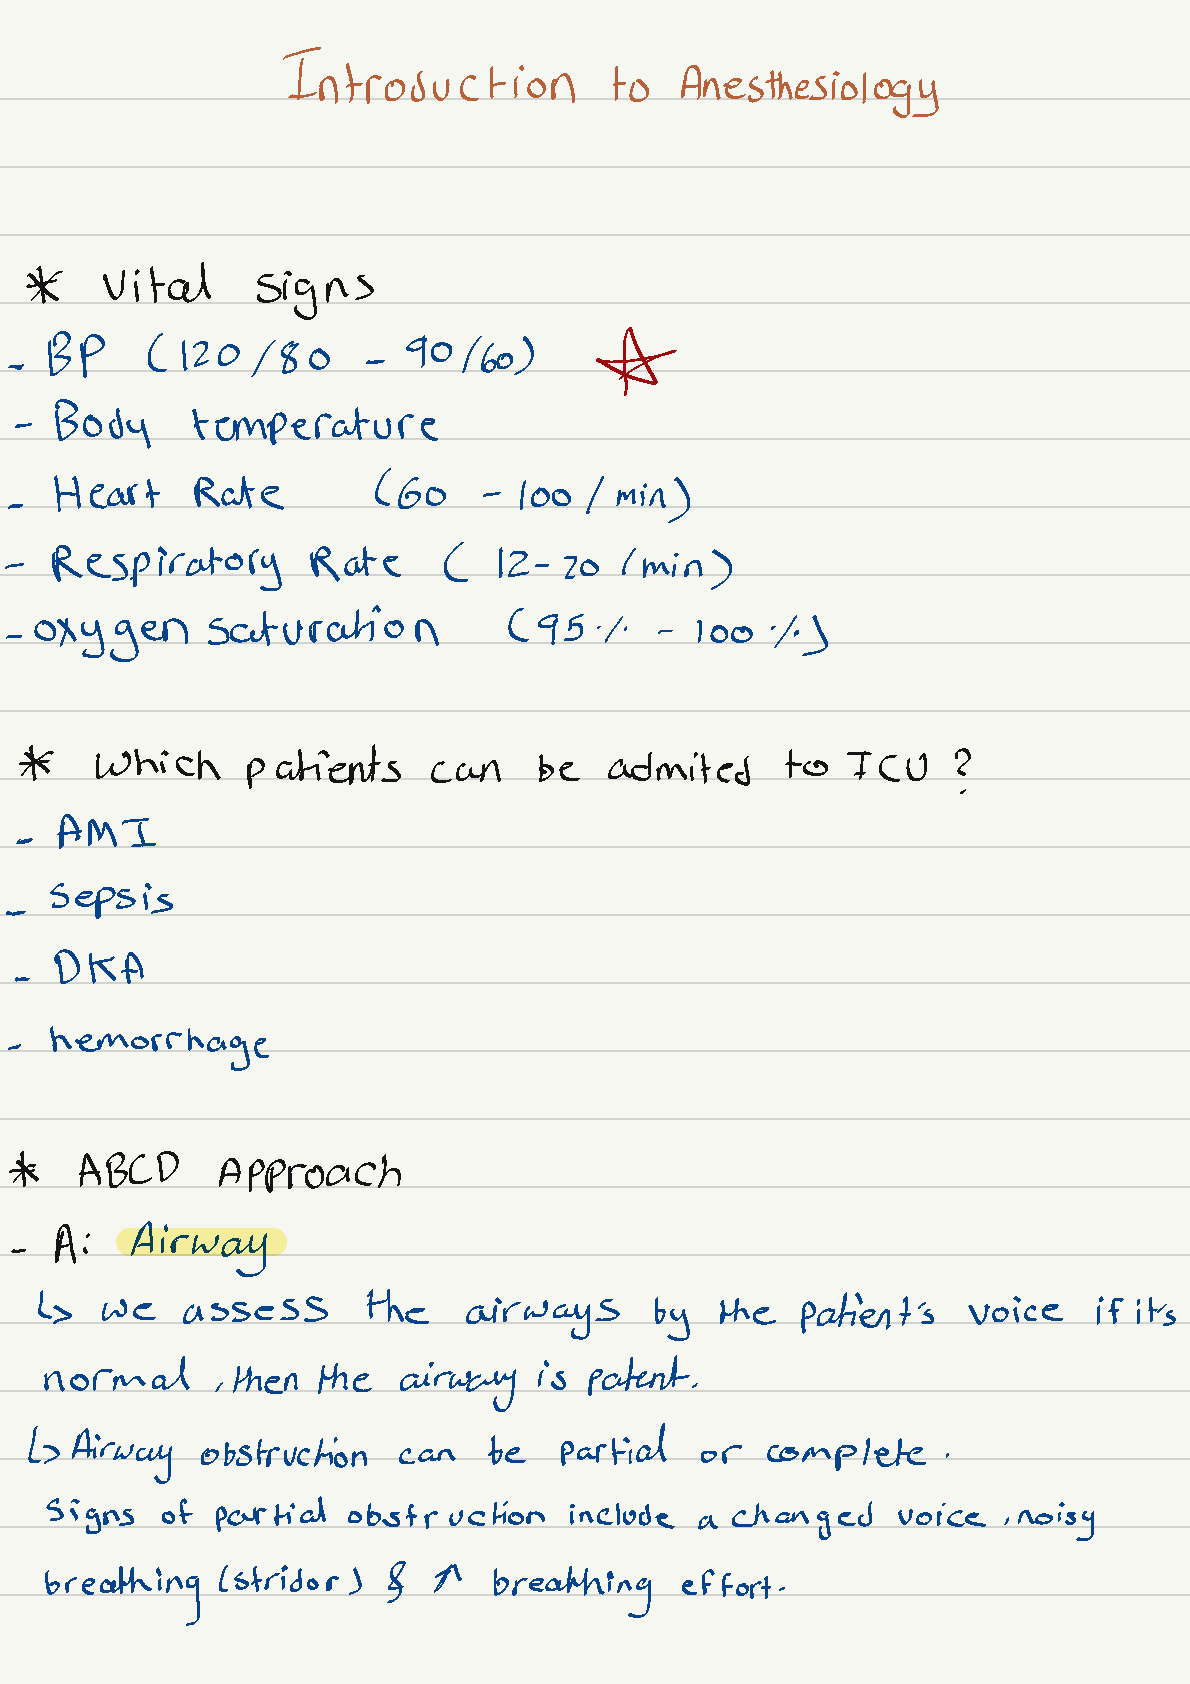 Introduction to Anesthesiology
* Vital signs
- BP (120/80 - 90/60)
- Body temperature
- Heart Rate (60 - 100/min)
- Respiratory Rate (12-20/min)
- oxygen saturation (95% - 100%)
* Which patients can be admited to ICU?
- AMI
- Sepsis
- DKA
- hemorrhage
* ABCD Approach
- A: Airway
↳ we assess the airways by the patient's voice if its
normal, then the airway is patent.
↳ Airway obstruction can be partial or complete.
Signs of partial obstruction include a changed voice, noisy
breathing (stridor) & ↑ breathing effort.